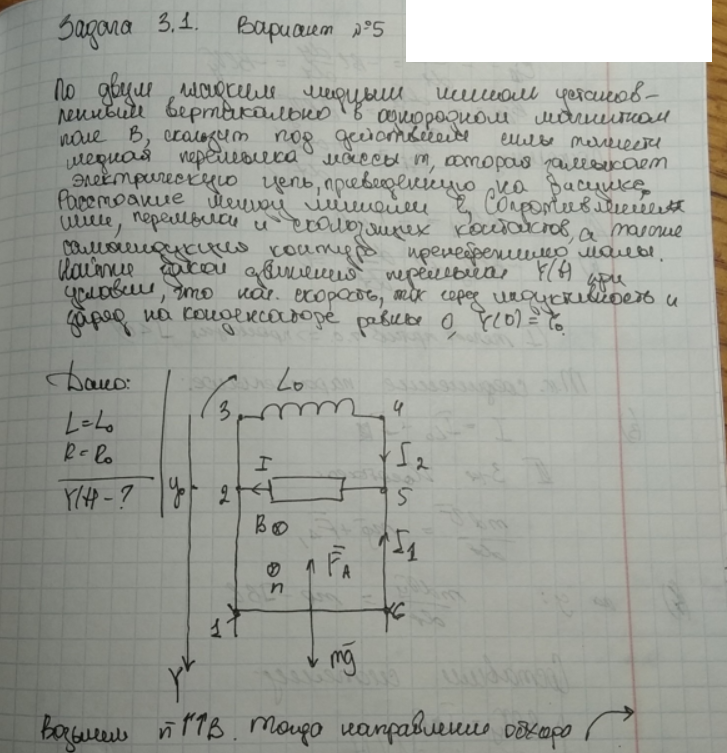 Задача 3.1. Вариант №5
По двум гладким медным шинам, установ-
ленным вертикально в однородном магнитном
поле B, скользит под действием силы тяжести
медная перемычка массы m, которая замыкает
электрическую цепь, приведенную на рисунке.
Расстояние между шинами ℓ, Сопротивлением
шин, перемычки и скользящих контактов, а также
самоиндукция контура пренебрежимо малы.
Найти закон движения перемычки Y(t) при
условии, что нач. скорость, ток через индуктивность и
заряд на конденсаторе равны 0, Y(0)=Y₀
Дано:
L=L₀
R=R₀
Y(t)-?
L₀
3
4
I₂
y₀
2
I
5
B
I₁
n
F̄A
1
6
mḡ
Y
Возьмем n̄↑↑B. Тогда направление обхода